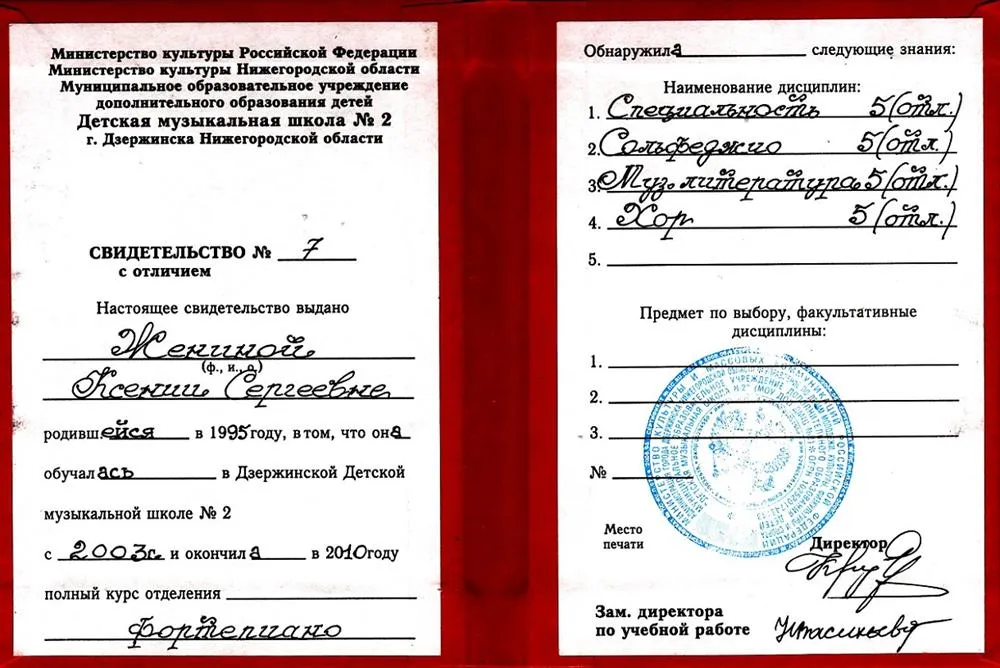 Министерство культуры Российской Федерации
Министерство культуры Нижегородской области
Муниципальное образовательное учреждение
дополнительного образования детей
Детская музыкальная школа № 2
г. Дзержинска Нижегородской области
СВИДЕТЕЛЬСТВО № 7
с отличием
Настоящее свидетельство выдано
Жениной
(ф., и., о.)
Ксении Сергеевне
родившейся в 1995году, в том, что она
обучалась в Дзержинской Детской
музыкальной школе № 2
с 2003г. и окончила в 2010году
полный курс отделения
фортепиано
Обнаружила следующие знания:
Наименование дисциплин:
1. Специальность 5(отл.)
2. Сольфеджио 5(отл.)
3. Муз. литература 5(отл.)
4. Хор 5(отл.)
5.
Предмет по выбору, факультативные
дисциплины:
1.
2.
3.
№
Место
печати
Директор
Зам. директора
по учебной работе